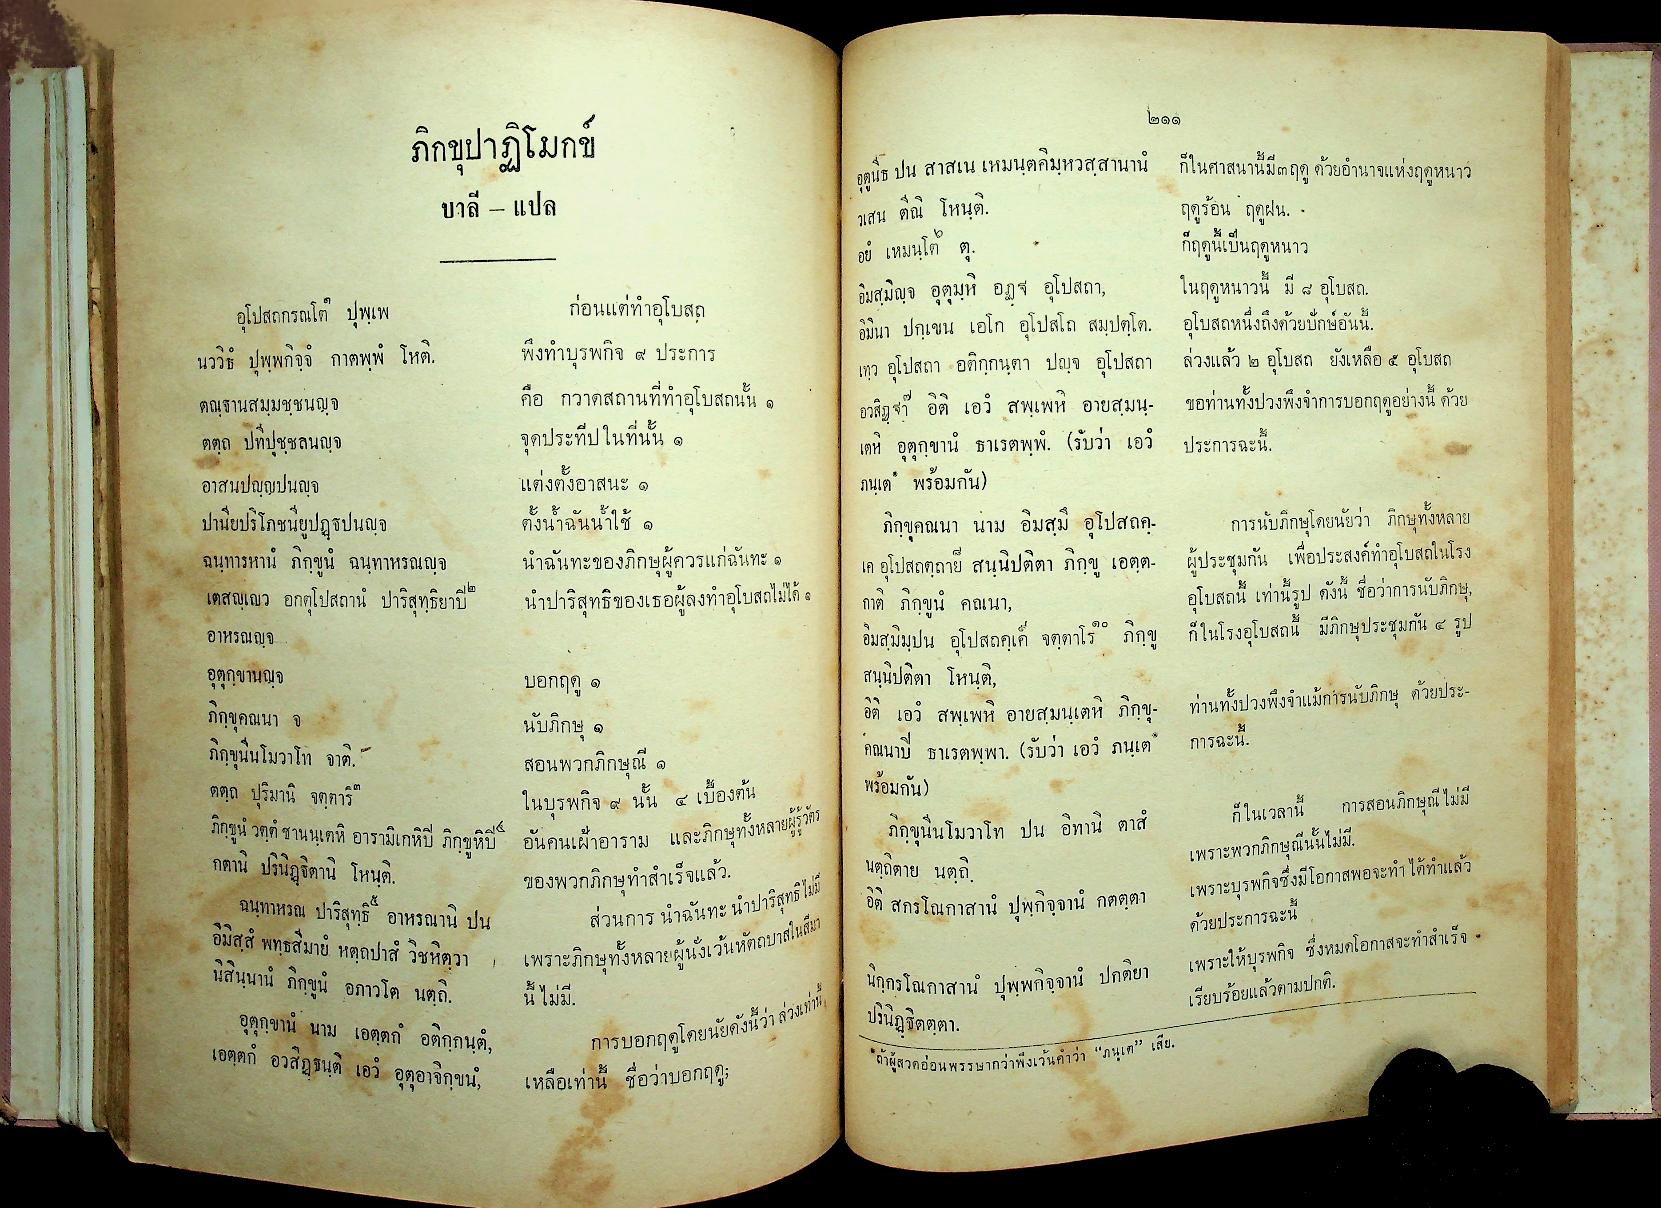 ภิกขุปาฏิโมกข์
บาลี – แปล
อุโปสถกรณโต๑ ปุพฺเพ
นววิธํ ปุพฺพกิจฺจํ กาตพฺพํ โหติ.
ตณฺฐานสมฺมชฺชนญฺจ
ตตฺถ ปทีปุชฺชลนญฺจ
อาสนปญฺญปนญฺจ
ปานียปริโภชนียูปฏฺฐปนญฺจ
ฉนฺทารหานํ ภิกฺขูนํ ฉนฺทาหรณญฺจ
เตสญฺเญว อกตุโปสถานํ ปาริสุทฺธิยาปิ๒
อาหรณญฺจ
อุตุกฺขานญฺจ
ภิกฺขุคณนา จ
ภิกฺขุนีนโมวาโท จาติ.
ตตฺถ ปุริมานิ จตฺตาริ๓
ภิกฺขูนํ วตฺตํ ชานนฺเตหิ อารามิเกหิปี ภิกฺขูหิปี๔
กตานิ ปรินิฏฺฐิตานิ โหนฺติ.
ฉนฺทาหรณ ปาริสุทฺธิ๕ อาหรณานิ ปน
อิมิสฺสํ พทฺธสีมายํ หตฺถปาสํ วิชหิตฺวา
นิสินฺนานํ ภิกฺขูนํ อภาวโต นตฺถิ.
อุตุกฺขานํ นาม เอตฺตกํ อติกฺกนฺตํ,
เอตฺตกํ อวสิฏฺฐนฺติ เอวํ อุตุอาจิกฺขนํ,
ก่อนแต่ทำอุโบสถ
พึงทำบุรพกิจ ๙ ประการ
คือ กวาดสถานที่ทำอุโบสถนั้น ๑
จุดประทีปในที่นั้น ๑
แต่งตั้งอาสนะ ๑
ตั้งน้ำฉันน้ำใช้ ๑
นำฉันทะของภิกษุผู้ควรแก่ฉันทะ ๑
นำปาริสุทธิของเธอผู้ลงทำอุโบสถไม่ได้ ๑
บอกฤดู ๑
นับภิกษุ ๑
สอนพวกภิกษุณี ๑
ในบุรพกิจ ๙ นั้น ๔ เบื้องต้น
อันคนเฝ้าอาราม และภิกษุทั้งหลายผู้รู้วัตร
ของพวกภิกษุทำสำเร็จแล้ว.
ส่วนการ นำฉันทะ นำปาริสุทธิ ไม่มี
เพราะภิกษุทั้งหลายผู้นั่งเว้นหัตถบาสในสีมา
นี้ ไม่มี.
การบอกฤดูโดยนัยดังนี้ว่า ล่วงเท่านี้,
เหลือเท่านี้ ชื่อว่าบอกฤดู;
๒๑๑
อุตูนิธ ปน สาสเน เหมนฺตคิมฺหวสฺสานานํ
วเสน ตีณิ โหนฺติ.
อยํ เหมนฺโต๖ ตุ.
อิมสฺมิญฺจ อุตุมฺหิ อฏฺฐ อุโปสถา,
อิมินา ปกฺเขน เอโก อุโปสโถ สมฺปตฺโต.
เทฺว อุโปสถา อติกฺกนฺตา ปญฺจ อุโปสถา
อวสิฏฺฐา๗ อิติ เอวํ สพฺเพหิ อายสฺมนฺ-
เตหิ อุตุกฺขานํ ธาเรตพฺพํ. (รับว่า เอวํ
ภนฺเต* พร้อมกัน)
ภิกฺขุคณนา นาม อิมสฺมึ อุโปสถคฺ-
เค อุโปสถตฺถาย๘ สนฺนิปติตา ภิกฺขู เอตฺต-
กาติ ภิกฺขูนํ คณนา,
อิมสฺมิมฺปน อุโปสถคฺเค๙ จตฺตาโร๑๐ ภิกฺขู
สนฺนิปติตา โหนฺติ,
อิติ เอวํ สพฺเพหิ อายสฺมนฺเตหิ ภิกฺขุ-
คณนาปี ธาเรตพฺพา. (รับว่า เอวํ ภนฺเต*
พร้อมกัน)
ภิกฺขุนีนโมวาโท ปน อิทานิ ตาสํ
นตฺถิตาย นตฺถิ.
อิติ สกรโณกาสานํ ปุพฺกิจฺจานํ กตตฺตา
นิกฺกรโณกาสานํ ปุพฺพกิจฺจานํ ปกติยา
ปรินิฏฺฐิตตฺตา.
ก็ในศาสนานี้มี๓ฤดู ด้วยอำนาจแห่งฤดูหนาว
ฤดูร้อน ฤดูฝน.
ก็ฤดูนี้เป็นฤดูหนาว
ในฤดูหนาวนี้ มี ๘ อุโบสถ.
อุโบสถหนึ่งถึงด้วยปักษ์อันนี้.
ล่วงแล้ว ๒ อุโบสถ ยังเหลือ ๕ อุโบสถ
ขอท่านทั้งปวงพึงจำการบอกฤดูอย่างนี้ ด้วย
ประการฉะนี้.
การนับภิกษุโดยนัยว่า ภิกษุทั้งหลาย
ผู้ประชุมกัน เพื่อประสงค์ทำอุโบสถในโรง
อุโบสถนี้ เท่านี้รูป ดังนี้ ชื่อว่าการนับภิกษุ,
ก็ในโรงอุโบสถนี้ มีภิกษุประชุมกัน ๔ รูป
ท่านทั้งปวงพึงจำแม้การนับภิกษุ ด้วยประ-
การฉะนี้.
ก็ในเวลานี้ การสอนภิกษุณี ไม่มี
เพราะพวกภิกษุณีนั้นไม่มี.
เพราะบุรพกิจซึ่งมีโอกาสพอจะทำ ได้ทำแล้ว
ด้วยประการฉะนี้
เพราะให้บุรพกิจ ซึ่งหมดโอกาสจะทำสำเร็จ
เรียบร้อยแล้วตามปกติ.
*ถ้าผู้สวดอ่อนพรรษากว่าพึงเว้นคำว่า “ภนฺเต” เสีย.